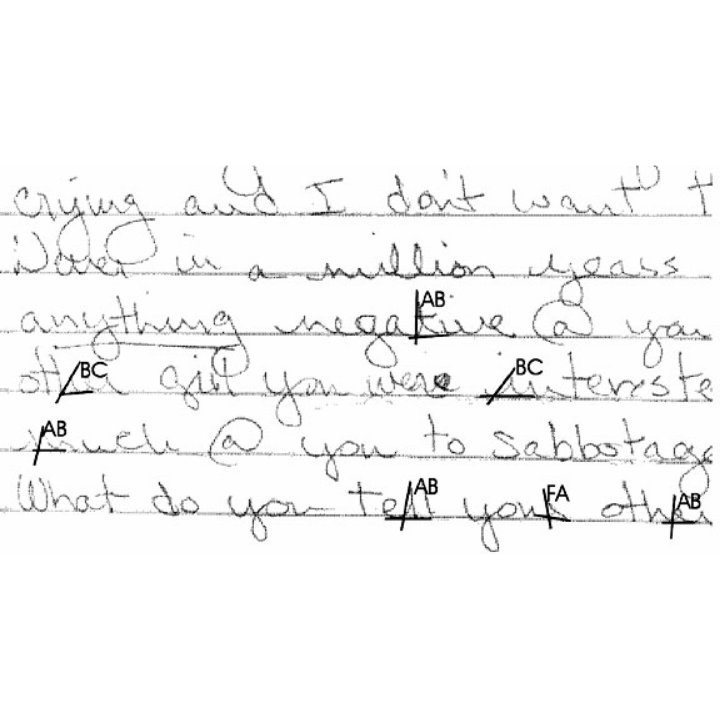 crying and I don't want t
Never in a million years
AB
anything negative @ you
BC BC
other girl you were intereste
AB
much @ you to sabbotage
AB FA AB
What do you tell your other